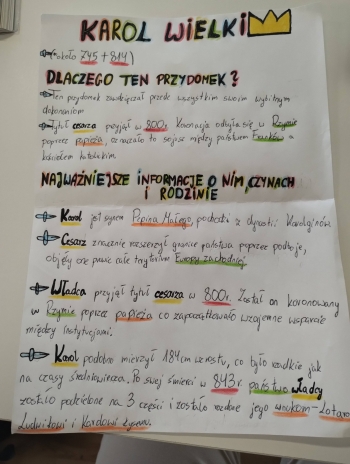 KAROL WIELKI
około 745 + 814)
DLACZEGO TEN PRZYDOMEK?
Ten przydomek zawdzięczał przede wszystkim swoim wybitnym
dokonaniom
Tytuł cesarza przyjął w 800r. Koronacja odbyła się w Rzymie
poprzez papieża, oznaczało to sojusz między państwem Franków a
kościołem katolickim.
NAJWAŻNIEJSZE INFORMACJE O NIM, CZYNACH
I RODZINIE
Karol jest synem Pepina Małego, pochodzi z dynastii Karolginów
Cesarz znacznie rozszerzył granice państwa poprzez podboje,
objęły one prawie całe terytorium Europy zachodniej
Władca przyjął tytuł cesarza w 800r. Został on koronowany
w Rzymie poprzez papieża co zapoczątkowało wzajemne wsparcie
między instytucjami.
Karol podobno mierzył 184cm wzrostu, co było rzadkie jak
na czasy średniowiecza. Po swej śmierci w 843r. państwo władcy
zostało podzielone na 3 części i zostało rozdane jego wnukom-Lotaro
Ludwikowi i Karolowi Łysemu.